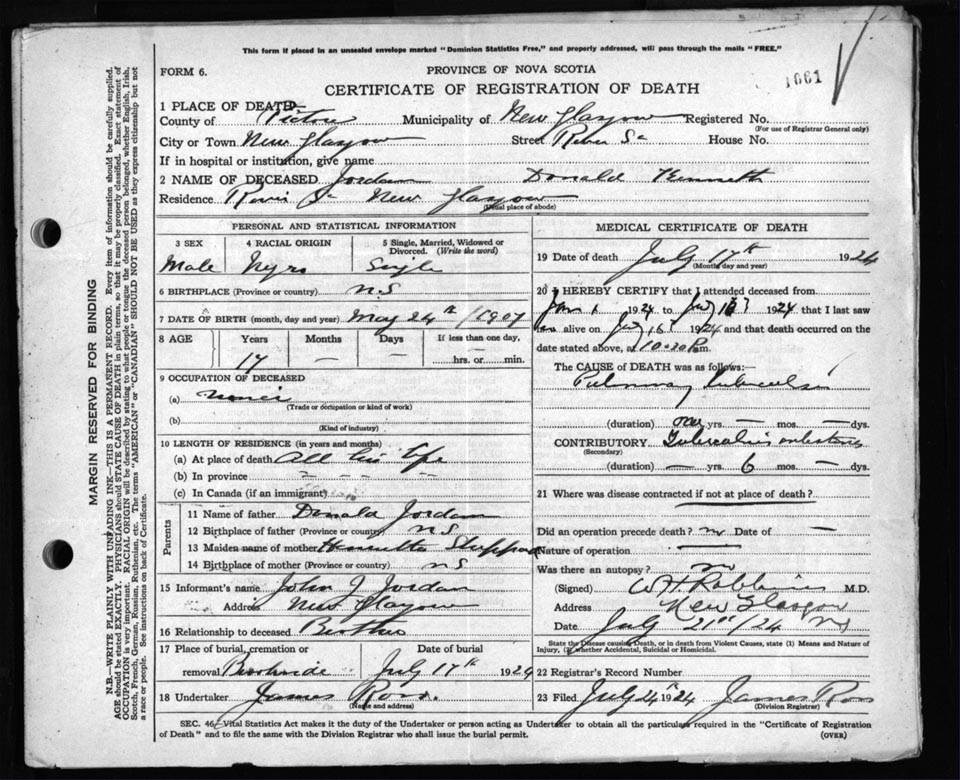 This form if placed in an unsealed envelope marked "Dominion Statistics Free," and properly addressed, will pass through the mails "FREE."
1661
FORM 6.
PROVINCE OF NOVA SCOTIA
CERTIFICATE OF REGISTRATION OF DEATH
1 PLACE OF DEATH
County of Pictou Municipality of New Glasgow Registered No.
(For use of Registrar General only)
City or Town New Glasgow Street River St House No.
If in hospital or institution, give name
2 NAME OF DECEASED Jordan Donald Kenneth
Residence River St New Glasgow
(Usual place of abode)
PERSONAL AND STATISTICAL INFORMATION
3 SEX 4 RACIAL ORIGIN 5 Single, Married, Widowed or Divorced. (Write the word)
Male Single
6 BIRTHPLACE (Province or country) N.S
7 DATE OF BIRTH (month, day and year) May 24th / 1907
8 AGE Years Months Days If less than one day,
17 — — hrs. or min.
9 OCCUPATION OF DECEASED
(a)
(Trade or occupation or kind of work)
(b)
(Kind of industry)
10 LENGTH OF RESIDENCE (in years and months)
(a) At place of death All his life
(b) In province — —
(c) In Canada (if an immigrant)
Parents
11 Name of father Donald Jordan
12 Birthplace of father (Province or country) N.S
13 Maiden name of mother Henrietta Sheppard
14 Birthplace of mother (Province or country) N S
15 Informant's name John J Jordan
Address New Glasgow
16 Relationship to deceased Brother
17 Place of burial, cremation or removal Date of burial
July 17th 1924
18 Undertaker James Ross.
(Name and address)
MEDICAL CERTIFICATE OF DEATH
19 Date of death July 17th 1924
(Month day and year)
20 I HEREBY CERTIFY that I attended deceased from
Jan 1 1924 to July 16 1924 that I last saw
alive on July 16 1924 and that death occurred on
date stated above, at 10-20 P.m.
The CAUSE of DEATH was as follows:—
Pulmonary tuberculosis
(duration) one yrs. — mos. — dys.
CONTRIBUTORY Tuberculosis intestines
(Secondary)
(duration) — yrs. 6 mos. — dys.
21 Where was disease contracted if not at place of death?
Did an operation precede death? no Date of —
Nature of operation
Was there an autopsy? no
(Signed) W H Robbins M.D.
Address New Glasgow
Date July 21st/24 NS
State the Disease causing Death, or in death from Violent Causes, state (1) Means and Nature of Injury, (2) whether Accidental, Suicidal or Homicidal.
22 Registrar's Record Number
23 Filed July 24 1924 James Ross
(Division Registrar)
SEC. 46, Vital Statistics Act makes it the duty of the Undertaker or person acting as Undertaker to obtain all the particulars required in the "Certificate of Registration
of Death" and to file the same with the Division Registrar who shall issue the burial permit. (OVER)
MARGIN RESERVED FOR BINDING
N.B.—WRITE PLAINLY WITH UNFADING INK—THIS IS A PERMANENT RECORD. Every item of information should be carefully supplied.
AGE should be stated EXACTLY. PHYSICIANS should STATE CAUSE OF DEATH in plain terms, so that it may be properly classified. Exact statement of
OCCUPATION is very important. RACIAL ORIGIN will be described by stating to what people or tongue the deceased person belonged, whether English, Irish,
Scotch, French, German, Russian, Ruthenian, etc. The terms "AMERICAN" or "CANADIAN" SHOULD NOT BE USED as they express citizenship but not
a race or people. See instructions on back of Certificate.